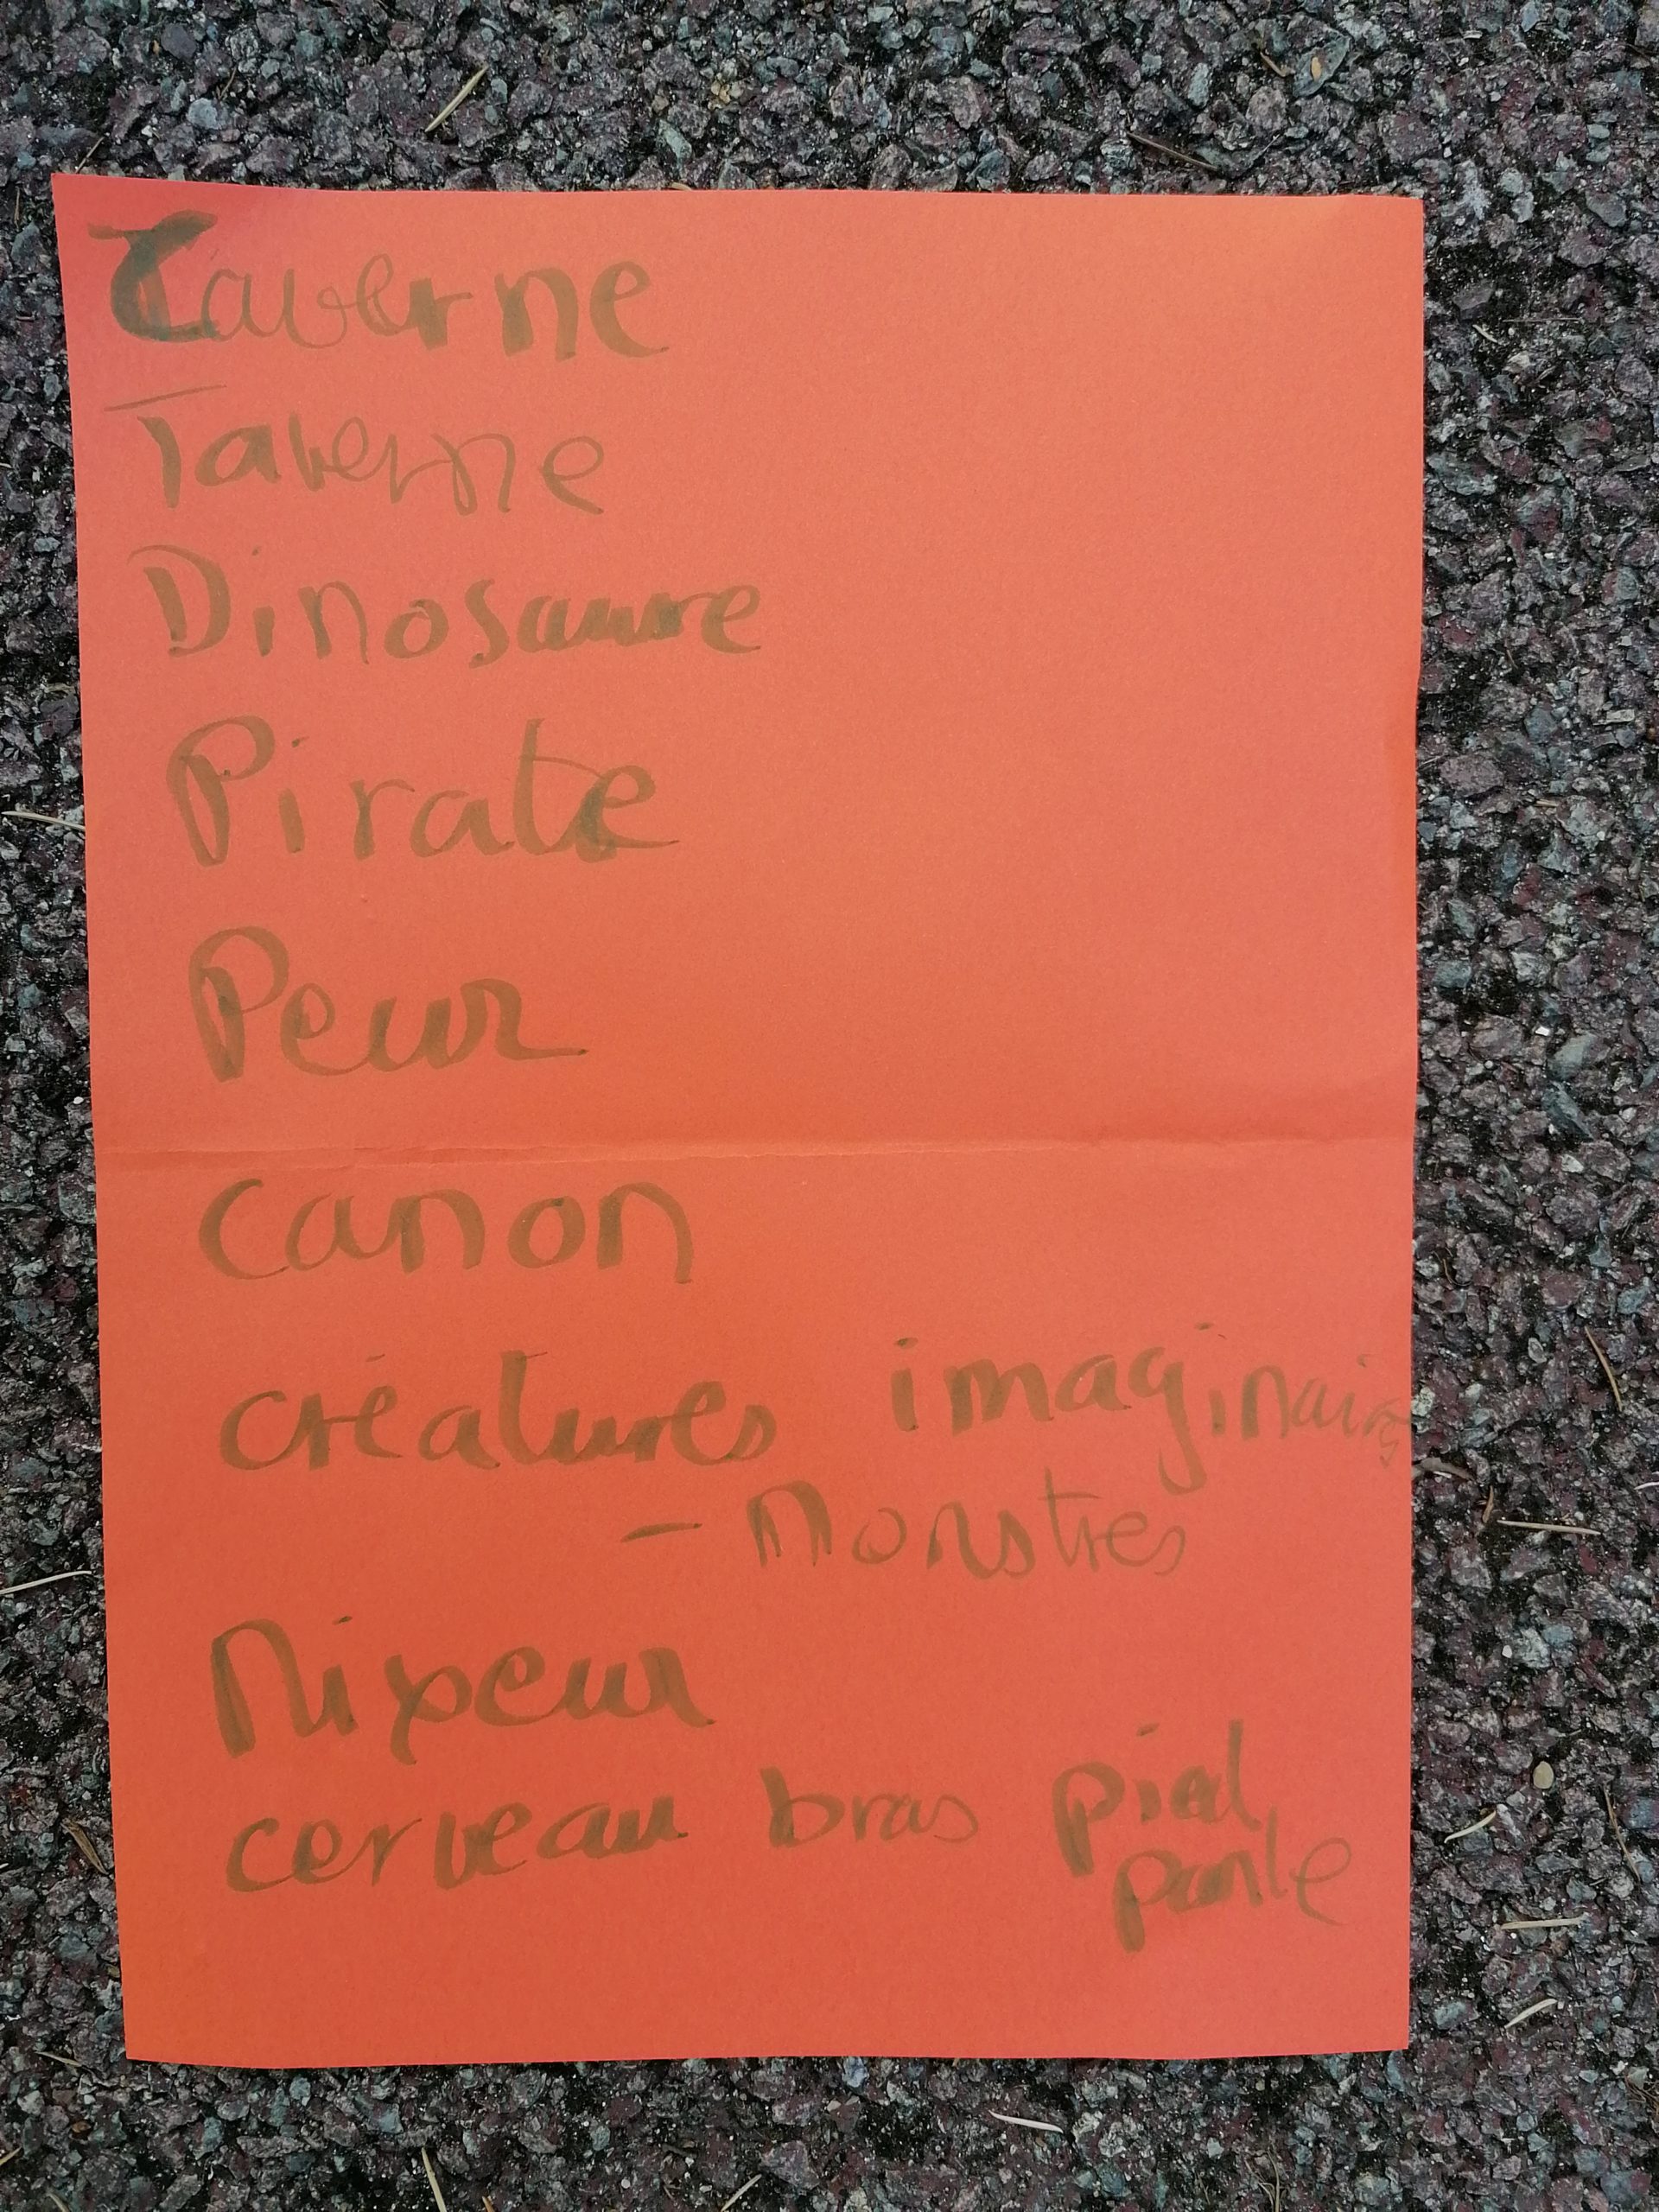 Caverne
Taverne
Dinosaure
Pirate
Peur
Canon
créatures imaginaires
- Monstres
Mixeur
cerveau bras pied
parle